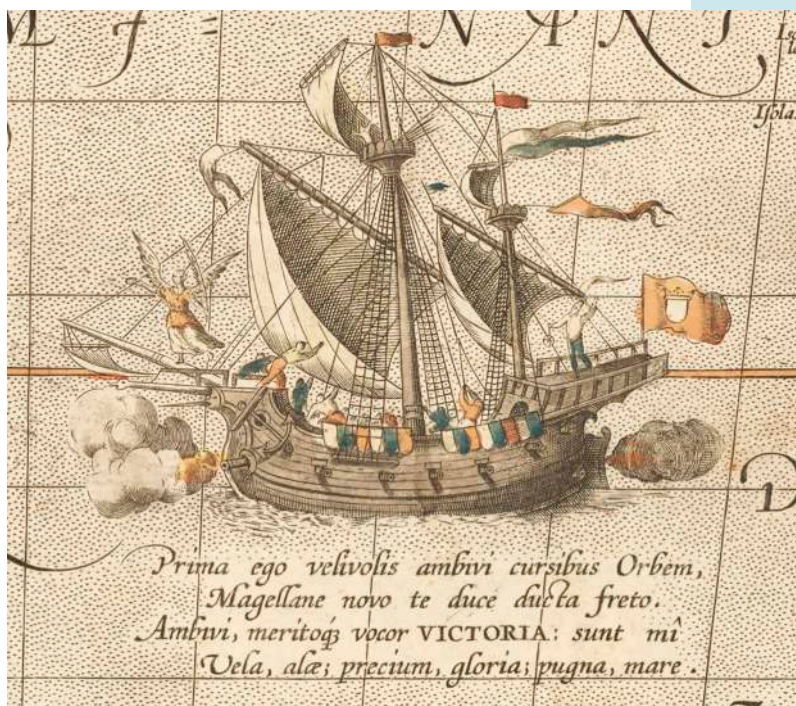 M
N
Isola
Prima ego velivolis ambivi cursibus Orbem,
Magellane novo te duce ducta freto.
Ambivi, meritoq́; vocor VICTORIA: sunt mî
Vela, alæ; precium, gloria; pugna, mare.
D